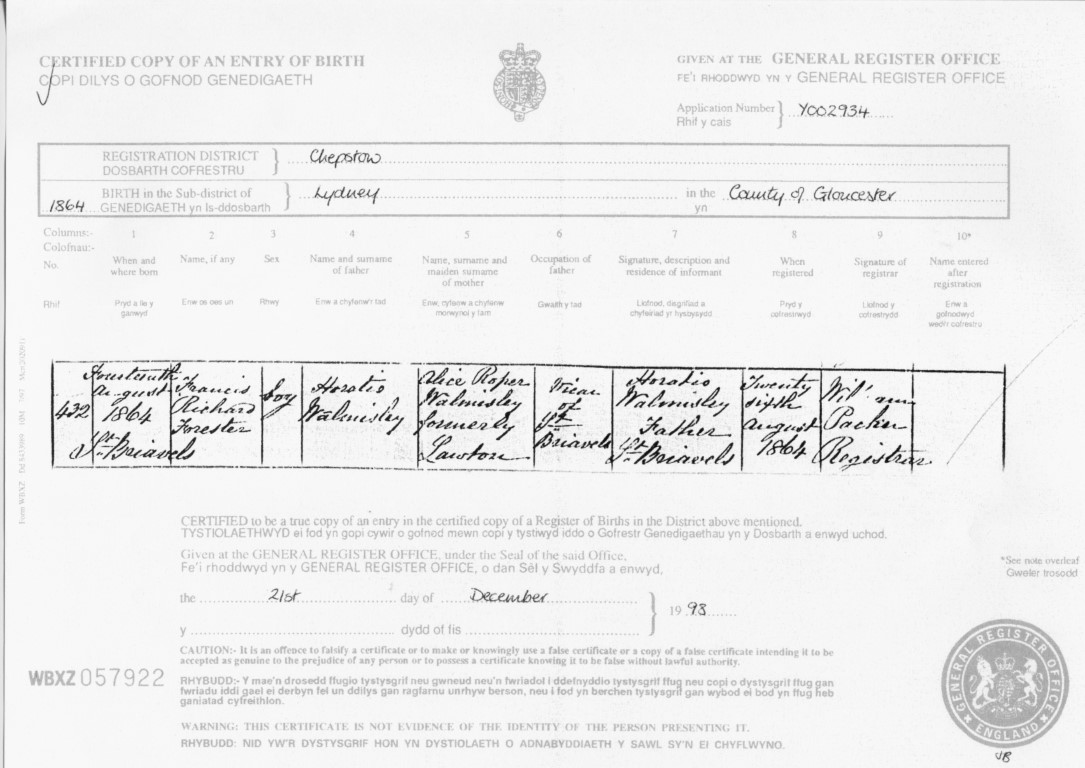 CERTIFIED COPY OF AN ENTRY OF BIRTH
COPI DILYS O GOFNOD GENEDIGAETH
GIVEN AT THE GENERAL REGISTER OFFICE
FE'I RHODDWYD YN Y GENERAL REGISTER OFFICE
Application Number
Rhif y cais
Y002934
REGISTRATION DISTRICT
DOSBARTH COFRESTRU
Chepstow
1864
BIRTH in the Sub-district of
GENEDIGAETH yn Is-ddosbarth
Lydney
in the
yn
County of Gloucester
Columns:- 1 2 3 4 5 6 7 8 9 10*
Colofnau:-
No.
When and where born
Name, if any
Sex
Name and surname of father
Name, surname and maiden surname of mother
Occupation of father
Signature, description and residence of informant
When registered
Signature of registrar
Name entered after registration
Rhif
Pryd a lle y ganwyd
Enw os oes un
Rhyw
Enw a chyfenw'r tad
Enw, cyfenw a chyfenw morwynol y fam
Gwaith y tad
Llofnod, disgrifiad a chyfeiriad yr hysbysydd
Pryd y cofrestrwyd
Llofnod y cofrestrydd
Enw a gofnodwyd wedi'r cofrestru
432
Fourteenth
August
1864
St. Briavels
Francis
Richard
Forester
Boy
Horatio
Walmisley
Alice Roper
Walmisley
formerly
Lawton
Vicar
of
St
Briavels
Horatio
Walmisley
Father
St. Briavels
Twenty
sixth
August
1864
William
Packer
Registrar
CERTIFIED to be a true copy of an entry in the certified copy of a Register of Births in the District above mentioned.
TYSTIOLAETHWYD ei fod yn gopi cywir o gofnod mewn copi y tystiwyd iddo o Gofrestr Genedigaethau yn y Dosbarth a enwyd uchod.
Given at the GENERAL REGISTER OFFICE, under the Seal of the said Office,
Fe'i rhoddwyd yn y GENERAL REGISTER OFFICE, o dan Sêl y Swyddfa a enwyd,
*See note overleaf
Gweler trosodd
the 21st day of December
1993
y dydd of fis
CAUTION:- It is an offence to falsify a certificate or to make or knowingly use a false certificate or a copy of a false certificate intending it to be
accepted as genuine to the prejudice of any person or to possess a certificate knowing it to be false without lawful authority.
WBXZ 057922
RHYBUDD:- Y mae'n drosedd ffugio tystysgrif neu gwneud neu'n fwriadol l ddefnyddio tystysgrif ffug neu copi o dystysgrif ffug gan
fwriadu iddi gael ei derbyn fel un ddilys gan ragfarnu unrhyw berson, neu i fod yn berchen tystysgrif gan wybod ei bod yn ffug heb
ganiatad cyfreithlon.
WARNING: THIS CERTIFICATE IS NOT EVIDENCE OF THE IDENTITY OF THE PERSON PRESENTING IT.
RHYBUDD: NID YW'R DYSTYSGRIF HON YN DYSTIOLAETH O ADNABYDDIAETH Y SAWL SY'N EI CHYFLWYNO.
GENERAL REGISTER OFFICE
ENGLAND
JB
Form WBXZ